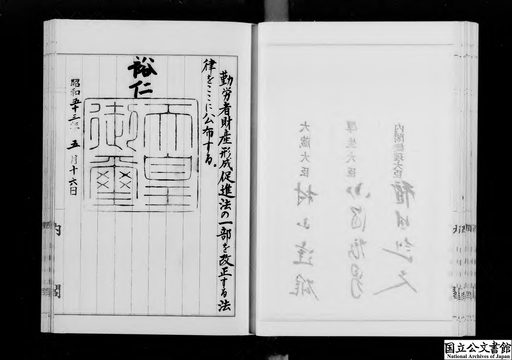 勤労者財産形成促進法の一部を改正する法
律をここに公布する。
裕仁
天皇
御璽
昭和五十三年五月十六日
内閣
内閣総理大臣
厚生大臣
大蔵大臣
村山達雄
国立公文書館
National Archives of Japan